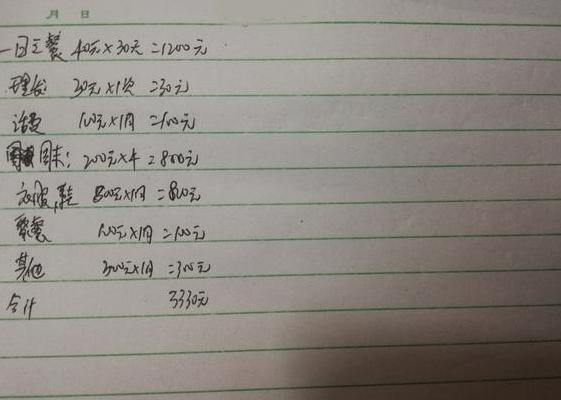 月 日
一日三餐 40元×30天 =1200元
理发 30元×1次 =30元
话费 100元×1月 =100元
周末: 200元×4 =800元
衣服,鞋 800元×1月 =800元
聚餐 100元×1月 =100元
其他 300元×1月 =300元
合计 3330元